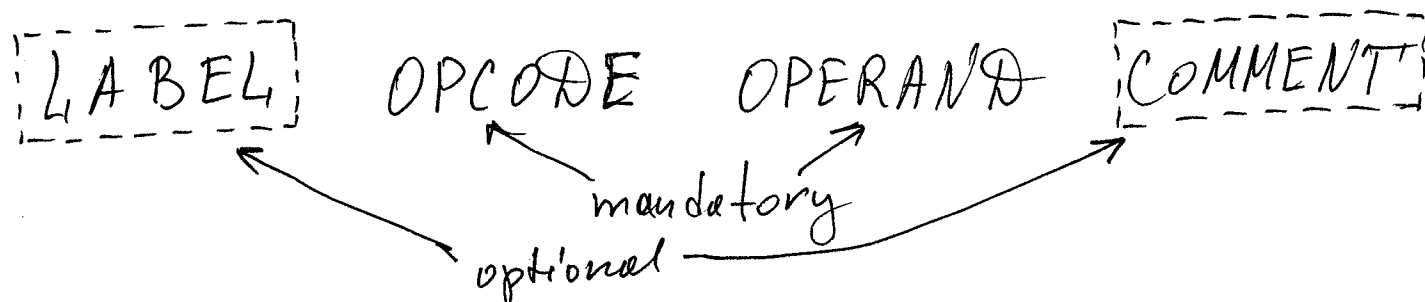 LABEL OPCODE OPERAND COMMENT
mandatory
optional